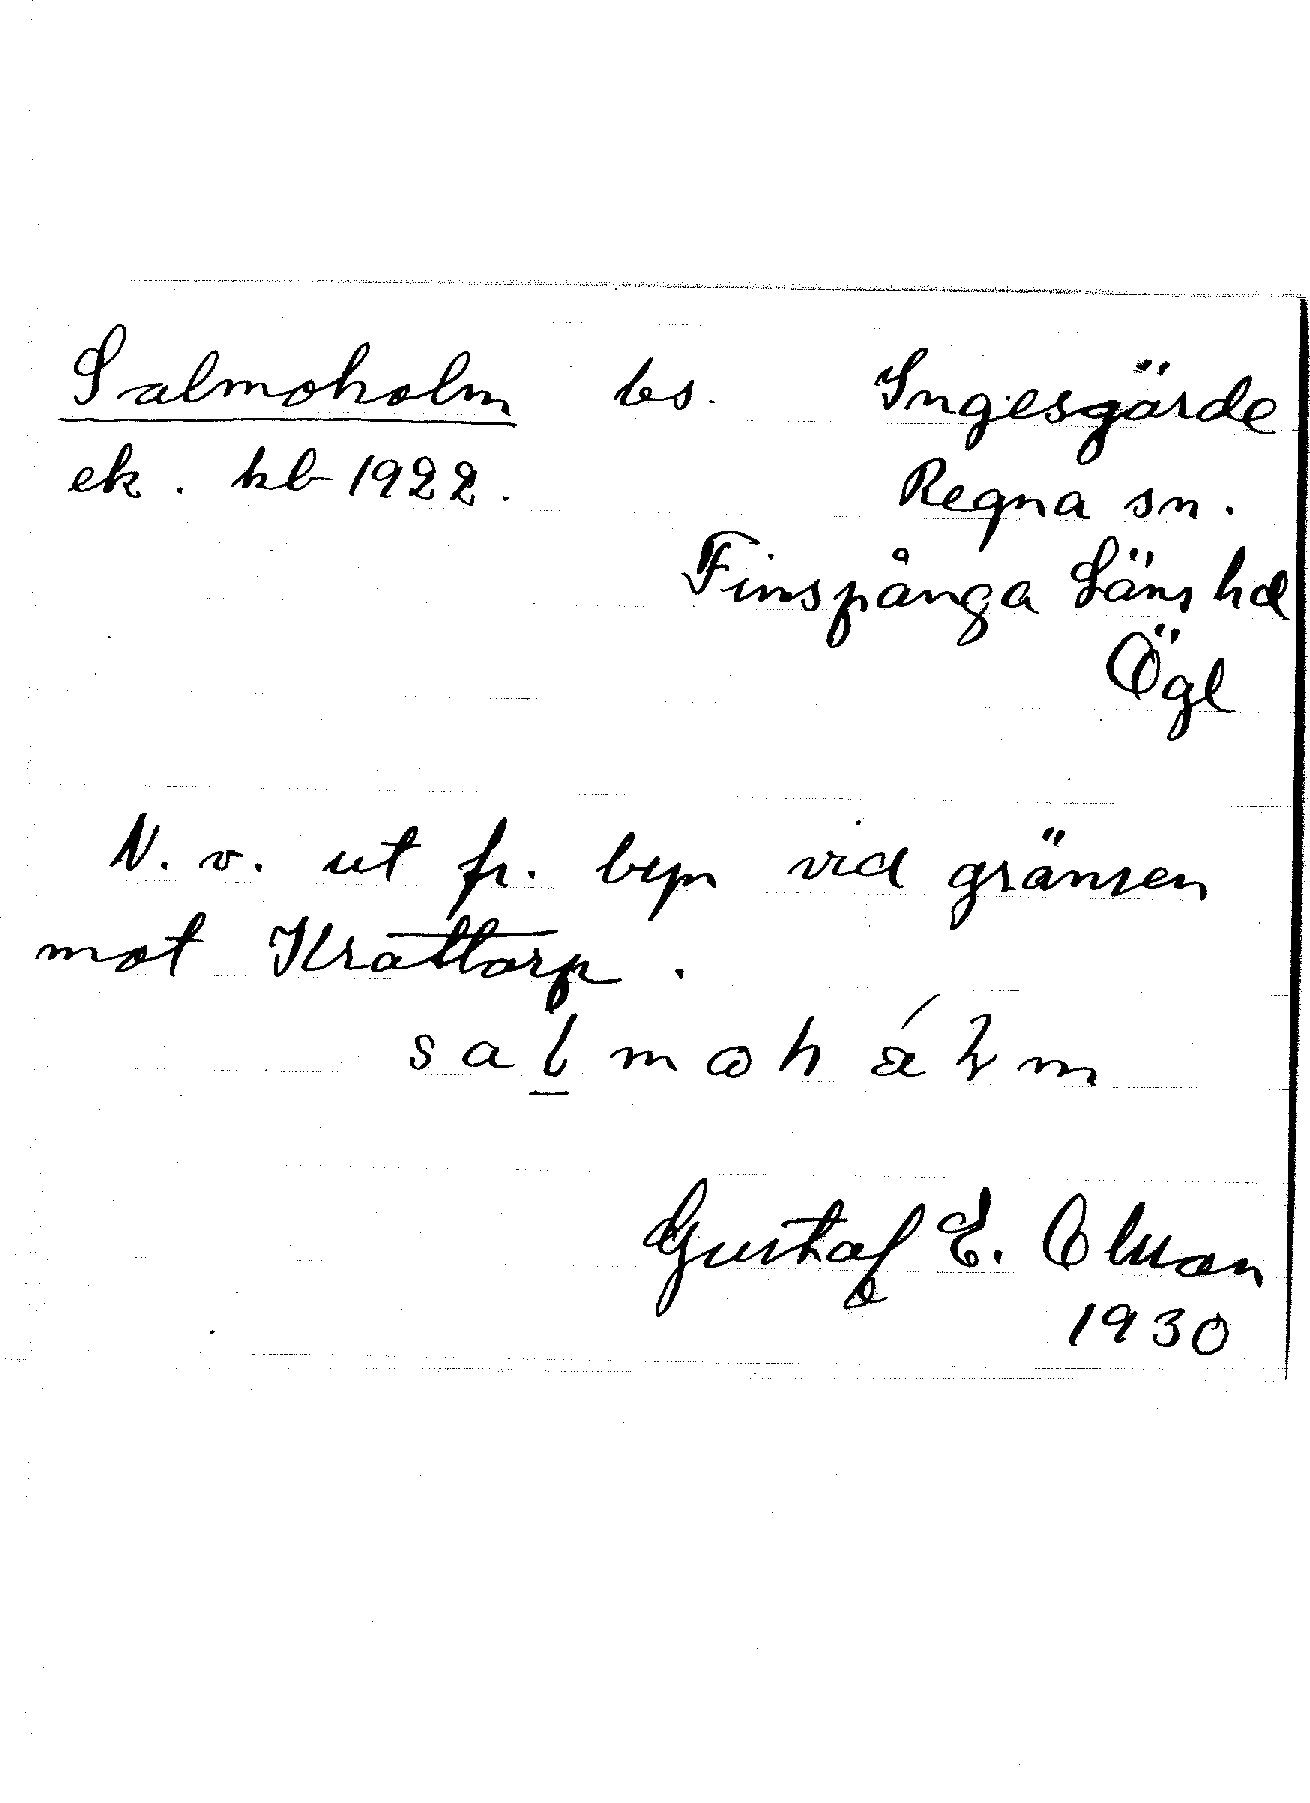 Salmoholm bs. Ingesgärde
ek. kb 1922. Regna sn.
Finspånga Läns hd
Ögl
N. v. ut fr. byn vid gränsen
mot Krattorp.
salmoh
Gustaf E. Olsson
1930